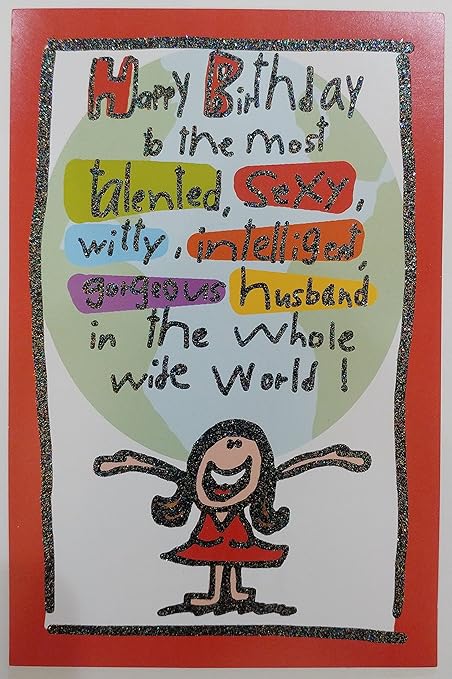 Happy Birthday
to the most
talented, sexy,
witty, intelligent,
gorgeous husband
in the whole
wide World!